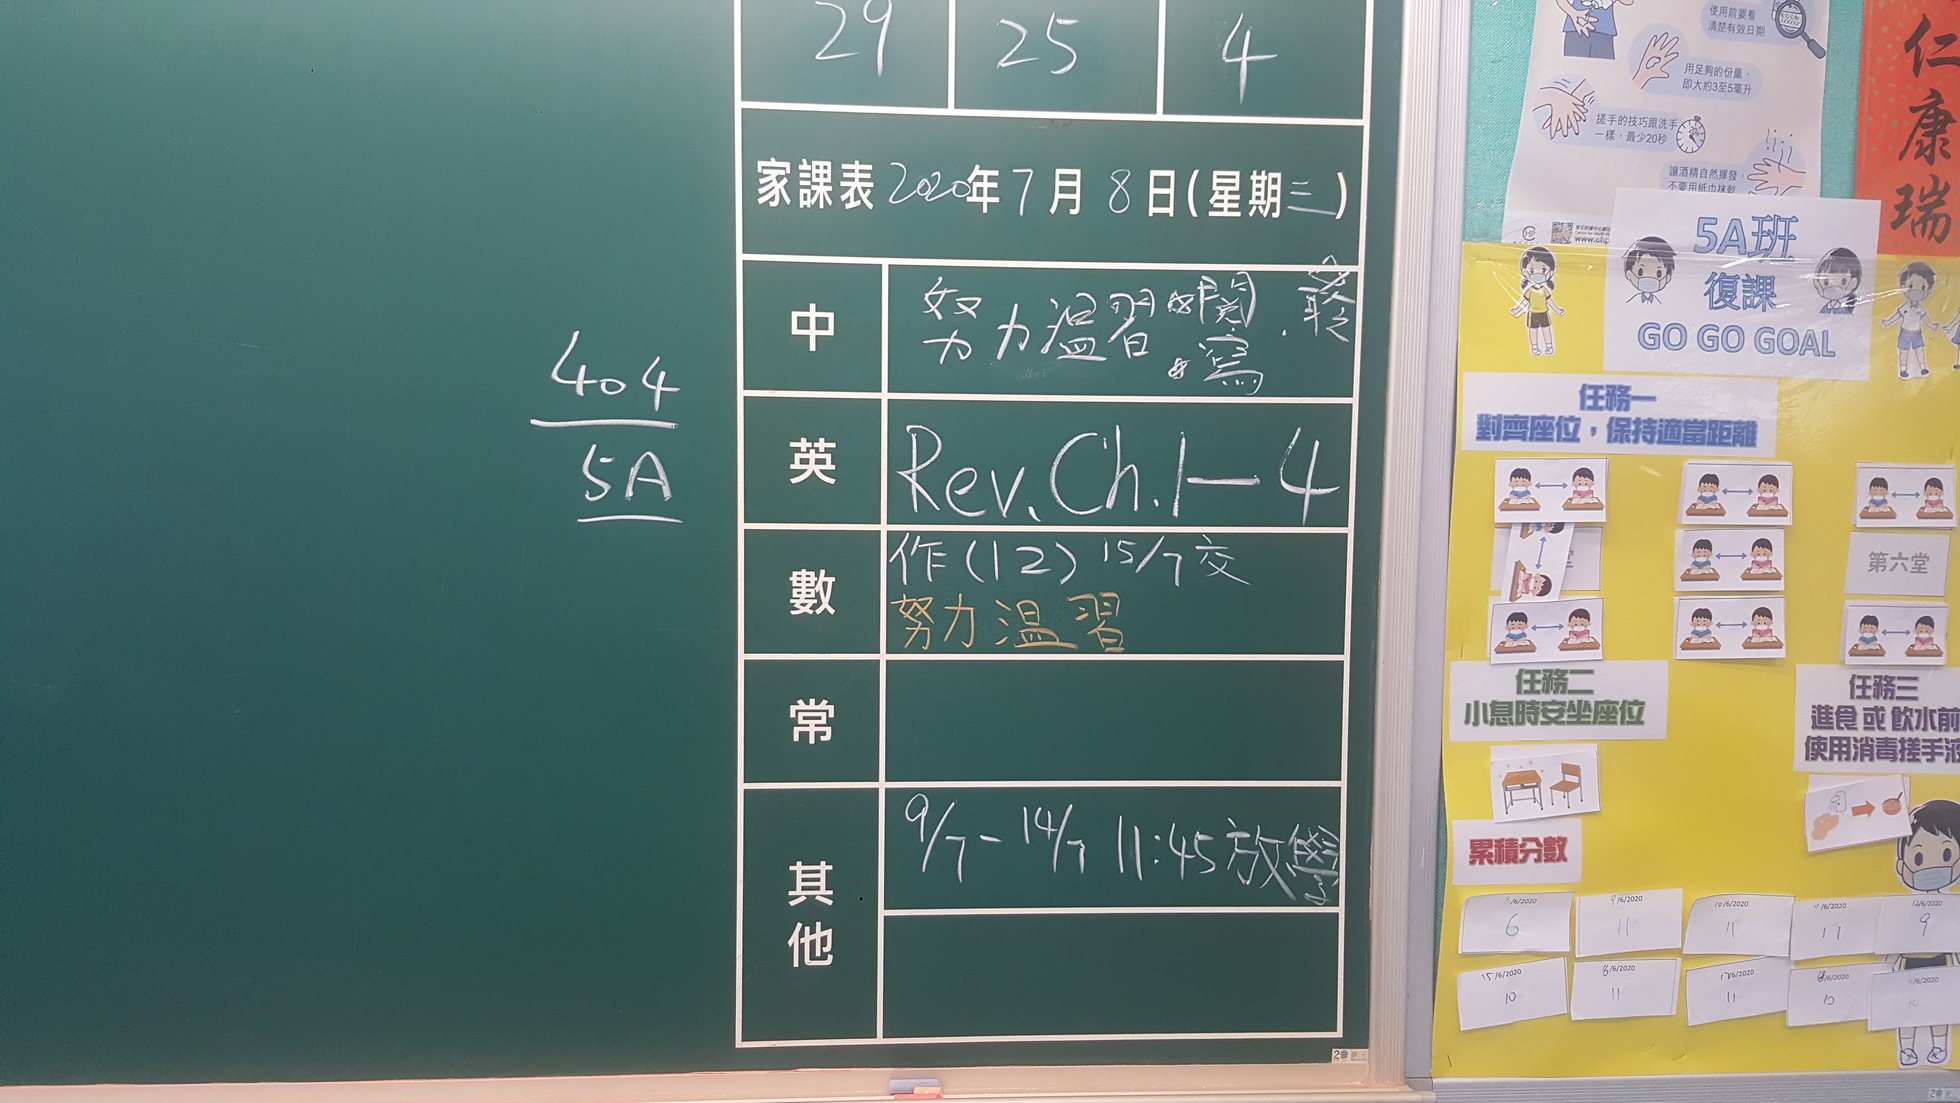 29 25 4
家課表 2020年7月8日(星期三)
中 努力溫習
英 Rev. Ch. 1-4
數 作(12) 15/7交
努力溫習
常
其他 9/7-14/7 11:45放學
404
5A
使用前要看
清楚有效日期
用足夠的份量，
即大約3至5毫升
搓手的技巧跟洗手
一樣，最少20秒
讓酒精自然揮發，
不要用紙巾抹乾
仁康瑞
5A班
復課
GO GO GOAL
任務一
對齊座位，保持適當距離
第六堂
任務二
小息時安坐座位
任務三
進食 或 飲水前
使用消毒搓手液
累積分數
/6/2020 9/6/2020 10/6/2020 /6/2020 12/6/2020
6 11 11 11 9
15/6/2020 /6/2020 /6/2020 /6/2020 /6/2020
10 11 11 10